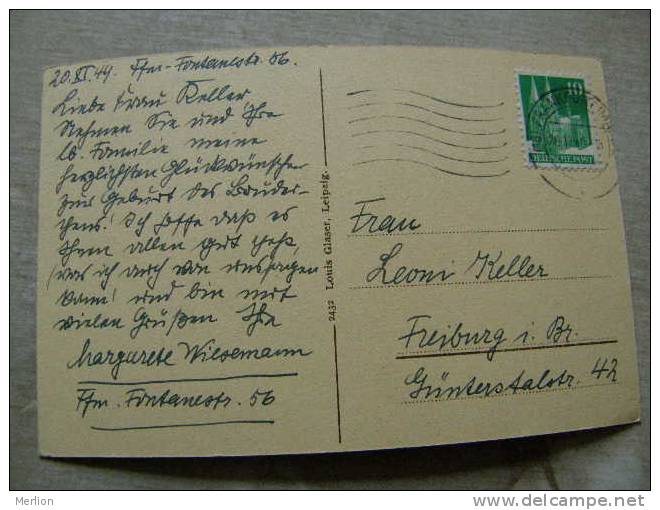 20.XI.49. Ffm-Fontanestr. 56.
Liebe Frau Keller
Nehmen Sie und Ihre
lb. Familie meine
herzlichsten Glückwünsche
zur Geburt des Brüder-
chens! Ich hoffe daß es
Ihnen allen gut geht,
was ich auch von uns sagen
kann! und bin mit
vielen Grüßen Ihre
Margarete Wiesemann
Ffm. Fontanestr. 56
2432 Louis Glaser, Leipzig.
10
DEUTSCHE POST
Frau
Leoni Keller
Freiburg i. Br.
Günterstalstr. 42
Merlion
www.delcampe.net